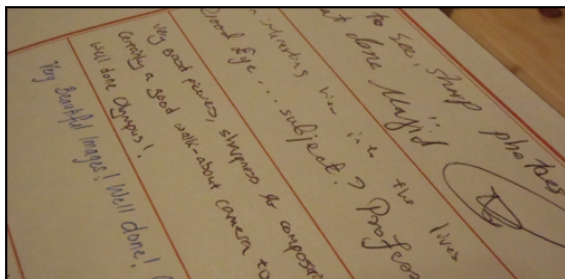 to see, sharp photos
done Majid
interesting view into the lives
Good Eye... subject? Profess
Very good pictures, sharpness & composition
Certainly a good walk-about camera to
Well done Olympus!
Very Beautiful Images! Well done!